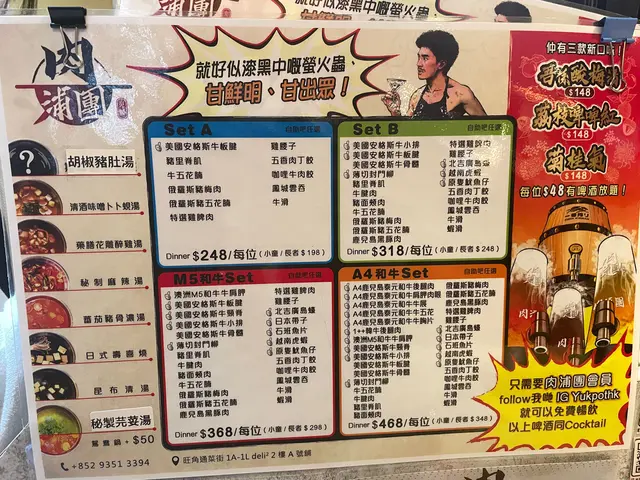 肉
浦團
就好似漆黑中嘅螢火蟲、
甘鮮明、甘出眾！
胡椒豬肚湯
清酒味噌卜卜蜆湯
藥膳花雕醉雞湯
秘制麻辣湯
番茄豬骨濃湯
日式壽喜燒
昆布清湯
秘製芫荽湯
鴛鴦鍋 + $50
+852 9351 3394
旺角通菜街 1A-1L deli² 2 樓 A 號鋪
Set A
自助吧任選
美國安格斯牛板腱
豬里脊肌
牛五花腩
俄羅斯豬梅肉
俄羅斯豬五花腩
特選雞脾肉
雞腰子
五香肉丁餃
咖哩牛肉餃
鳳城雲吞
牛滑
Dinner $248/每位 (小童 / 長者 $ 198 )
Set B
自助吧任選
美國安格斯牛小排
美國安格斯牛板腱
美國安格斯牛骨髓
薄切封門柳
豬里脊肌
牛腱肉
豬面頰肉
牛五花腩
俄羅斯豬梅肉
俄羅斯豬五花腩
鹿兒島黑豚肉
特選雞脾肉
雞腰子
北吉廣島蠔
越南虎蝦
原隻魷魚仔
五香肉丁餃
咖哩牛肉餃
鳳城雲吞
牛滑
蝦滑
Dinner $318/每位 (小童 / 長者 $ 248 )
M5和牛Set
自助吧任選
澳洲M5和牛牛肩胛
美國安格斯牛板腱
美國安格斯牛頸脊
美國安格斯牛小排
美國安格斯牛骨髓
薄切封門柳
豬里脊肌
牛腱肉
豬面頰肉
牛五花腩
俄羅斯豬梅肉
俄羅斯豬五花腩
鹿兒島黑豚肉
特選雞脾肉
雞腰子
北吉廣島蠔
日本帶子
石斑魚片
越南虎蝦
原隻魷魚仔
五香肉丁餃
咖哩牛肉餃
鳳城雲吞
牛滑
蝦滑
Dinner $368/每位 (小童 / 長者 $ 298 )
A4和牛Set
自助吧任選
A4鹿兒島壽元和牛後腿肉
A4鹿兒島壽元和牛肩胛肉眼
A4鹿兒島壽元和牛牛展
A4鹿兒島壽元和牛牛五花
A4鹿兒島壽元和牛牛胸片
1++韓牛後腿肉
澳洲M5和牛牛肩胛
美國安格斯牛板腱
美國安格斯牛頸脊
美國安格斯牛小排
美國安格斯牛骨髓
薄切封門柳
豬里脊肌
牛腱肉
豬面頰肉
牛五花腩
俄羅斯豬梅肉
俄羅斯豬五花腩
鹿兒島黑豚肉
特選雞脾肉
雞腰子
北吉廣島蠔
日本帶子
石斑魚片
越南虎蝦
原隻魷魚仔
五香肉丁餃
咖哩牛肉餃
鳳城雲吞
牛滑
蝦滑
Dinner $468/每位 (小童 / 長者 $ 348 )
仲有三款新口味！
$148
$148
$148
每位$48有啤酒放題！
一番搾り
只需要肉浦團會員
follow我哋 IG Yukpothk
就可以免費暢飲
以上啤酒同Cocktail